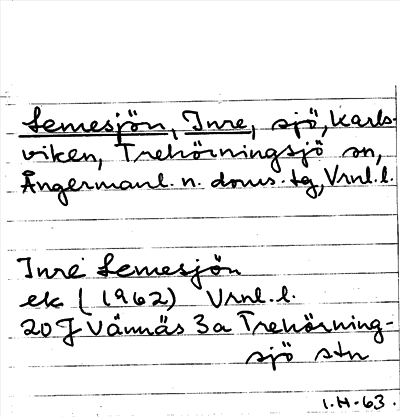 Lemesjön, Inre, sjö, Karls-
viken, Trehörningsjö sn,
Ångermanl. n. doms. tg, Vrnl. l.
Inre Lemesjön
ek (1962) Vrnl. l.
20J Vännäs 3a Trehörning-
sjö stn
I.H-63.